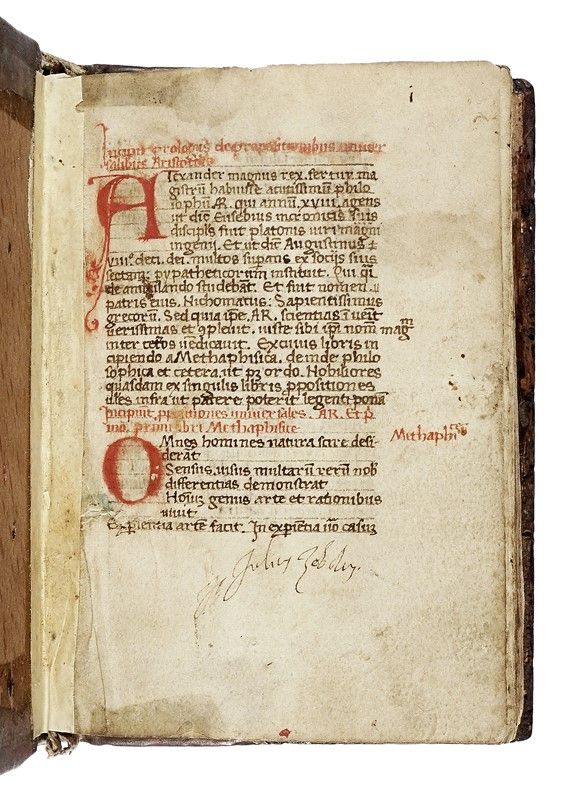 i
Incipit prologus de propositionibus univer
salibus Aristotelis
Alexander magnus rex. fertur ma
gistrū habuisse acutissimū philo
sophū AR. qui annū .xviii. agens
ut diē Eusebius in cronicis suis
discipls fuit platonis viri magni
ingenii. Et ut diē Augustinus
viiiº. de ci. dei. multos supans ex socijs suis
sectam pypatheticorum instituit. Qui
deambulando studebāt. Et fuit nomen
patris eius. Nichomacus: Sapientissimus
grecorū. Sed quia ipse. AR. scientias īvēit
verissimas et ꝯplevit. iuste sibi ipī nom̄ magrī
inter cet̄os vēdicavit. Ex cuius libris in
cipiendo a Methaphisica. deinde philo
sophica et cetera. ut pꝫ ordo. Nobiliores
quasdam ex singulis libris ppositiones
ut infra ut patere poterit legenti ponā
Incipiūt ppositiones universales. AR. Et p
mo. primi libri Methaphisice
OMnes homines natura scire desi
derāt
Sensus visus multarū rerū nob
differentias demonstrat
Hoīuꝫ genus arte et rationibus
vivit
Expientia artē facit. In expientia vō casuꝫ
Methaphice
Julius